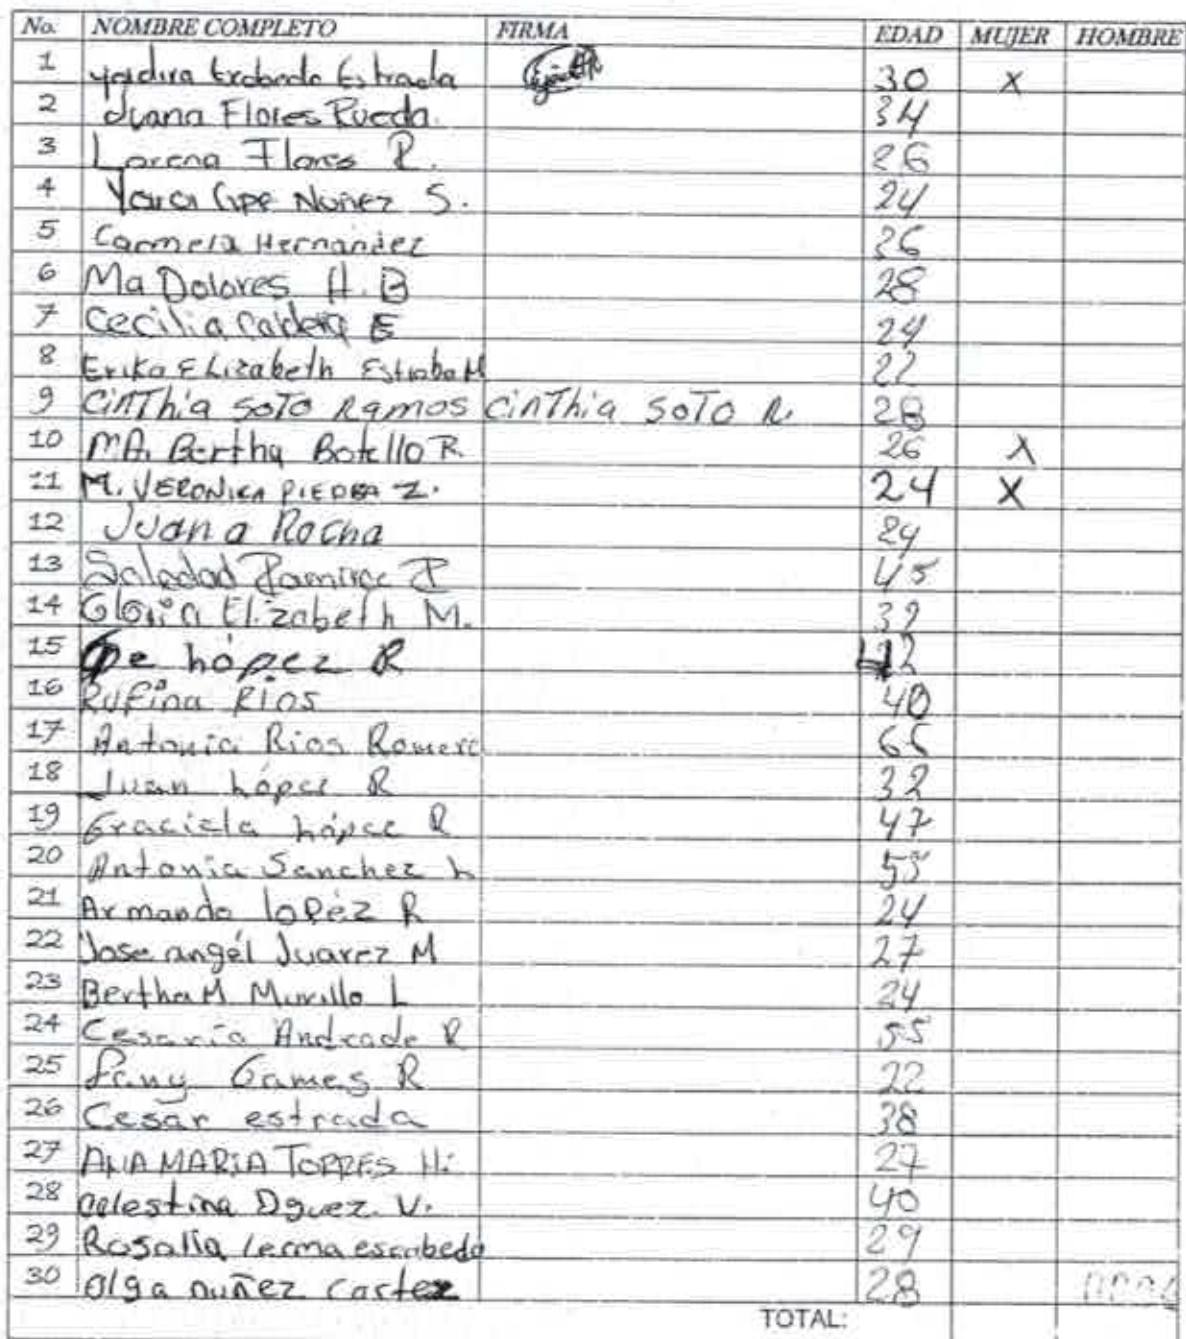 No. NOMBRE COMPLETO FIRMA EDAD MUJER HOMBRE
1 Yadira Estrada 30 X
2 Juana Flores Rueda. 34
3 Lorena Flores R. 26
4 Nuñez S. 24
5 Carmela Hernandez 26
6 Ma Dolores H. B 28
7 Cecilia Caldera E 24
8 Erika Elizabeth M 22
9 CinThia SoTo Ramos CinThia SoTo R. 28
10 MA. Bertha Botello R. 26 X
11 M. VERONICA PIEDRA Z. 24 X
12 Juana Rocha 24
13 Soledad Ramirez 45
14 Gloria Elizabeth M. 32
15 López R
16 Rufina Rios 40
17 Antonia Rios Romero
18 Juan López R 32
19 Graciela López R 47
20 Antonia Sanchez L 55
21 Armando lopéz R 24
22 Jose angél Juarez M 27
23 Bertha M Murillo L 24
24 Cesaria Andrade R 55
25 fany Games R 22
26 Cesar estrada 38
27 ANA MARIA TORRES H: 27
28 celestina Dguez. V. 40
29 Rosalia lerma escobedo 29
30 Olga nuñez cortez 28
TOTAL: